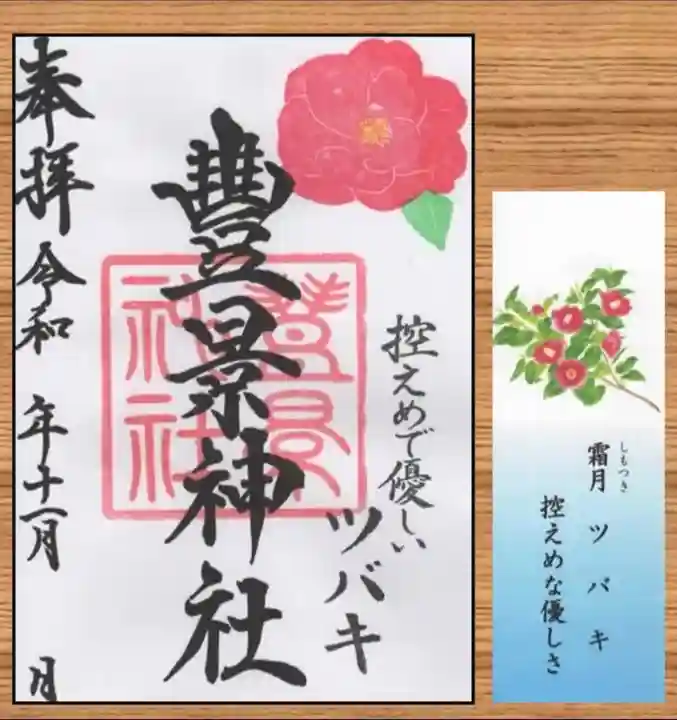 控えめで優しい
ツバキ
豊景神社
豊景神社
奉拝 令和 年十一月 月
霜月 ツバキ
しもつき
控えめな優しさ